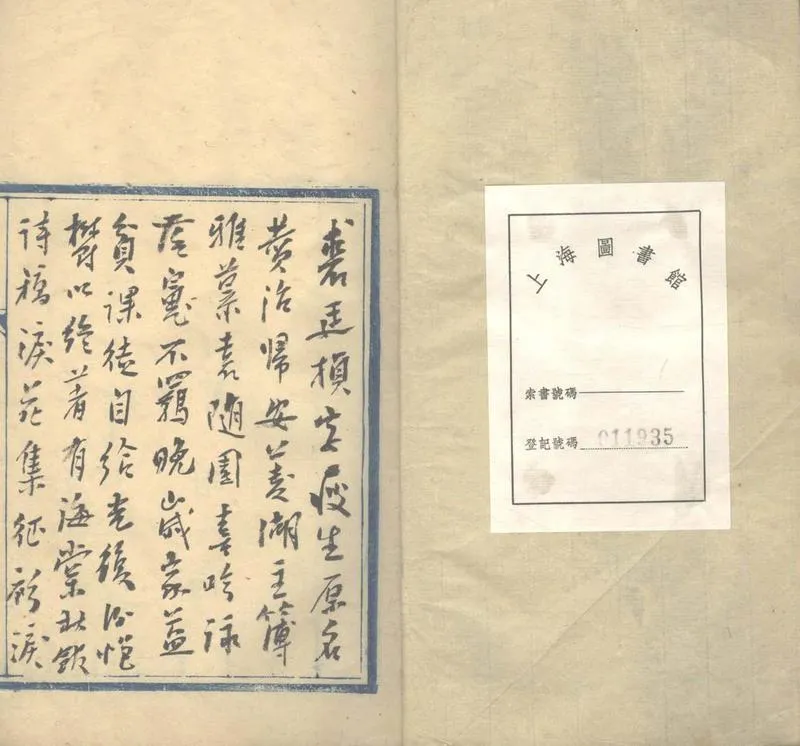 裘廷楨字瘦生原名
費治歸安菱湖主簿
雅慕袁隨園喜吟詠
落寞不羈晚歲家益
貧課徒自給光復後悒
鬱以終著有海棠秋館
詩稿淚花集征衫淚
上海圖書館
索書號碼
登記號碼 011935